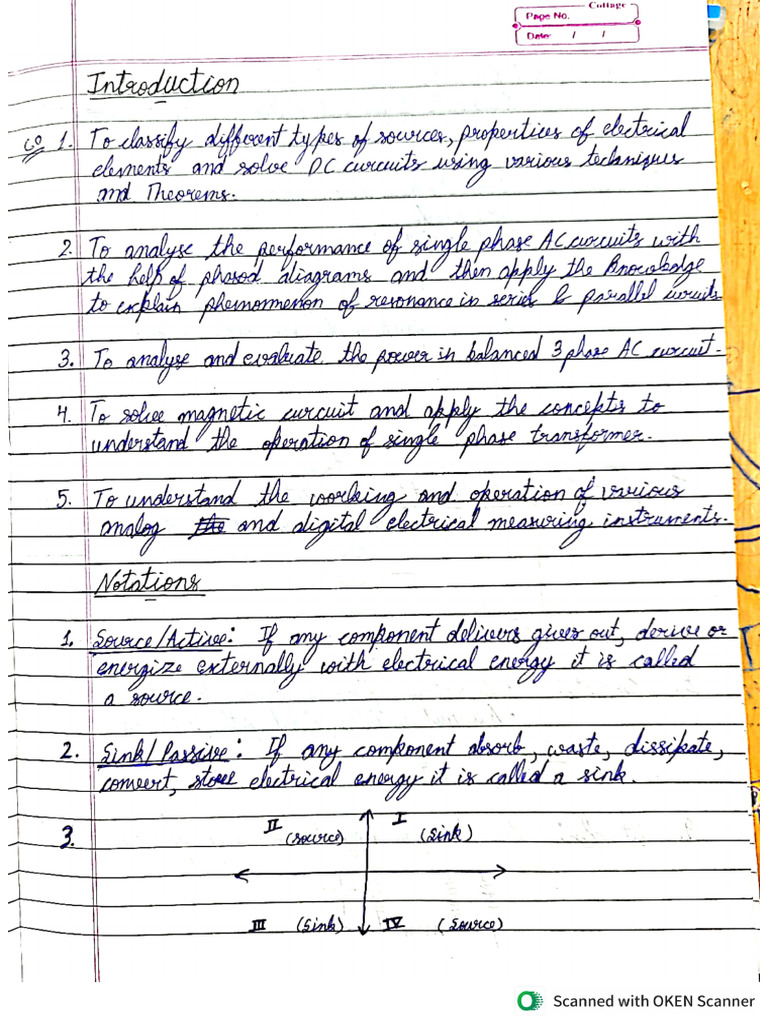 College
Page No.
Date: / /
Introduction
CO 1. To classify different types of sources, propertices of electrical
elements and solve DC circuits using various techniques
and Theorems.
2. To analyse the performance of single phase AC circuits with
the help of phasod diagrams and then apply the knowledge
to explain phenommenon of resonance in series & parallel circuits
3. To analyse and evaluate the power in balanced 3 phase AC circuit.
4. To solve magnetic circuit and apply the concepts to
understand the operation of single phase transformer.
5. To understand the working and operation of various
analog the and digital electrical measuring instruments.
Notations
1. Source/Active: If any component delivers gives out, derive or
energize externally with electrical energy it is called
a source.
2. Sink/Passive: If any component absorb, waste, dissipate,
convert, store electrical energy it is called a sink.
3. II (source) I (sink)
III (Sink) IV (Source)
Scanned with OKEN Scanner